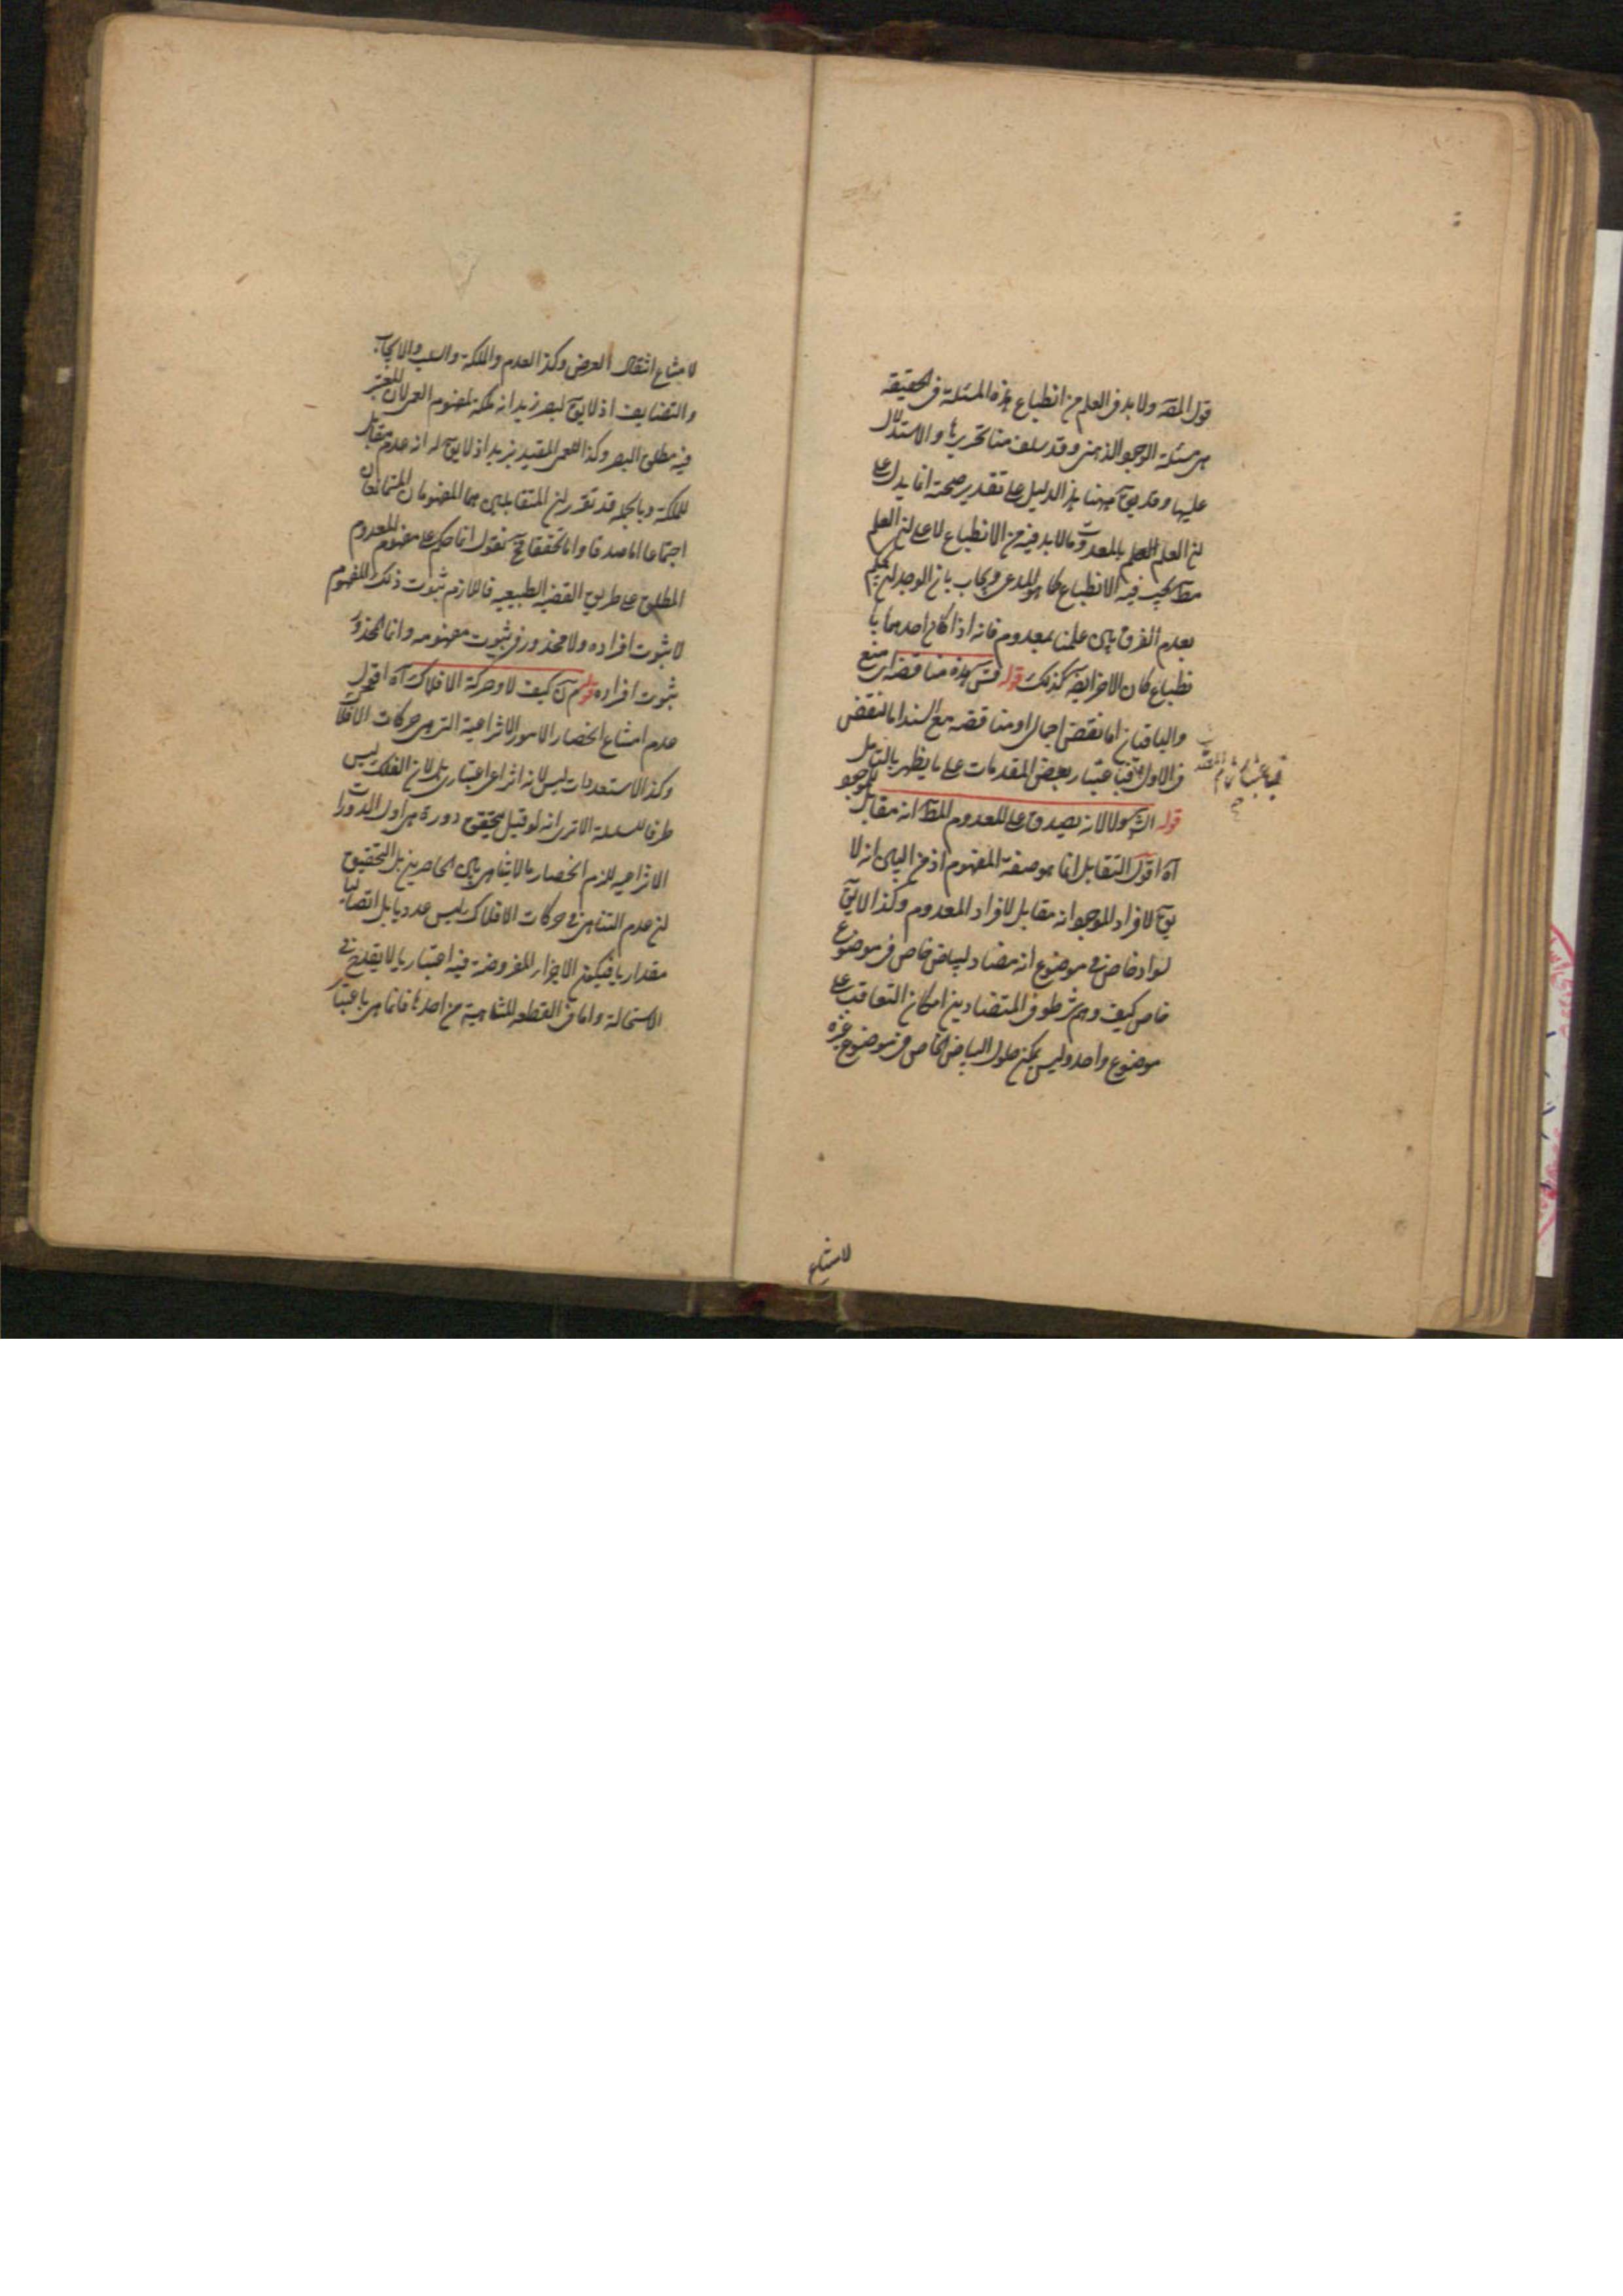 قول المصـ ولا بد في العلم من انطباع هذه المسئلة في الحقيقة
هى مسئلة الوجود الذهنى وقد سلف منا تحريرها والاستدلال
عليها وقد يقـ ههنا هذا الدليل على تقدير صحته انما يدل على
ان العلم بالمعدومات مما لا بد فيه من الانطباع لا على ان العلم
مطـ يجب فيه الانطباع كما هو المدعى ويجاب بان الوجدان يحكم
بعدم الفرق بين علمنا بمعدوم فانه اذا كان احدهما با
نطباع كان الاخر ايضـ كذلك قوله فتـ هذه مناقضة اى منع
والباقيان اما نقض اجمالى او مناقضة مع السند اما النقض
فى الاول فباعتبار بعض المقدمات على ما يظهر بالتامل
قوله الشـ ولا لانه يصدق على المعدوم المطـ انه مقابل للموجود
آه اقول التقابل انما هو صفة المفهوم اذ من البين انه لا
يقـ لافراد الموجود انه مقابل لافراد المعدوم وكذا لا يقـ
لسواد خاص فى موضوع انه مضاد لبياض خاص فى موضوع
خاص كيف وهم شرطوا فى المتضادين امكان التعاقب على
موضوع واحد وليس يمكن حلول البياض الخاص فى موضوع غيره
لامتناع
لامتناع انتقال العرض وكذا العدم والملكة والسلب والايجاب
والتضايف اذ لا يقـ لبصر زيد انه ملكة لمفهوم العمى لان المعتبر
فيه مطلق البصر وكذا العمى المقيد بزيد اذ لا يقـ له انه عدم مقابل
للملكة وبالجملة قد تقرر ان المتقابلين هما المفهومان المتمانعان
اجتماعا اما صدقا واما تحققا فح نقول انما حكم على مفهوم المعدوم
المطلق على طريق القضية الطبيعية فاللازم ثبوت ذلك المفهوم
لا ثبوت افراده ولا محذور فى ثبوت مفهومه وانما المحذور
ثبوت افراده قوله كيف لا وحركة الافلاك آه اقول
عدم امتناع انحصار الامور الانتزاعية التى هى حركات الافلاك
وكذا الاستعدادات ليس لانه انتزاعى اعتبارى بل لان الفلك ليس
طرفا للسلسلة الا ترى انه لو قيل بتحقق دورة هى اول الدورات
الانتزاعية للزم انحصار ما لا يتناهى بين الحاصرين بل التحقيق
ان عدم التناهى فى حركات الافلاك ليس عدديا بل اتصاليا
مقداريا فيكون الاجزاء المفروضة فيه اعتباريا لا يقدح فى
الاستحالة واما فى القطعة المتناهية من احدها فانما هى باعتبار